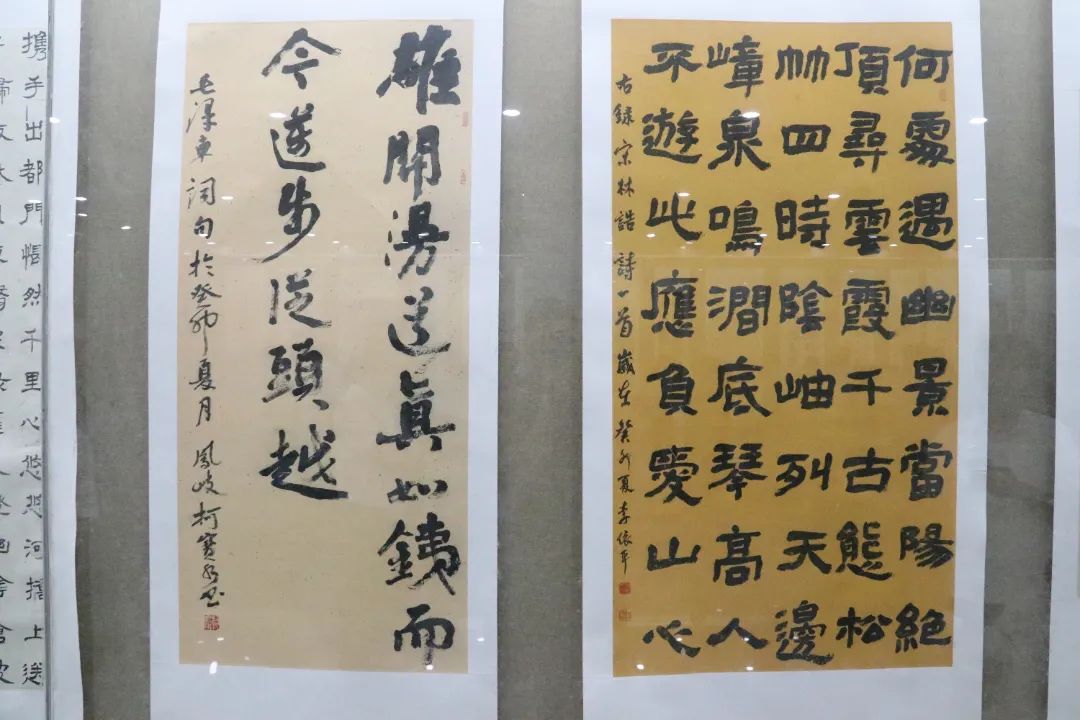 何處遇幽景當陽絕
頂尋雲霞千古態松
竹四時陰岫列天邊
嶂泉鳴澗底琴高人
不遊此應負愛山心
右錄宋林誥詩一首歲在癸卯夏李依平
雄關漫道真如鐵而
今邁步從頭越
毛澤東詞句於癸卯夏月鳳岐柯寶書
攜手出都門悵然千里心悠悠河上送